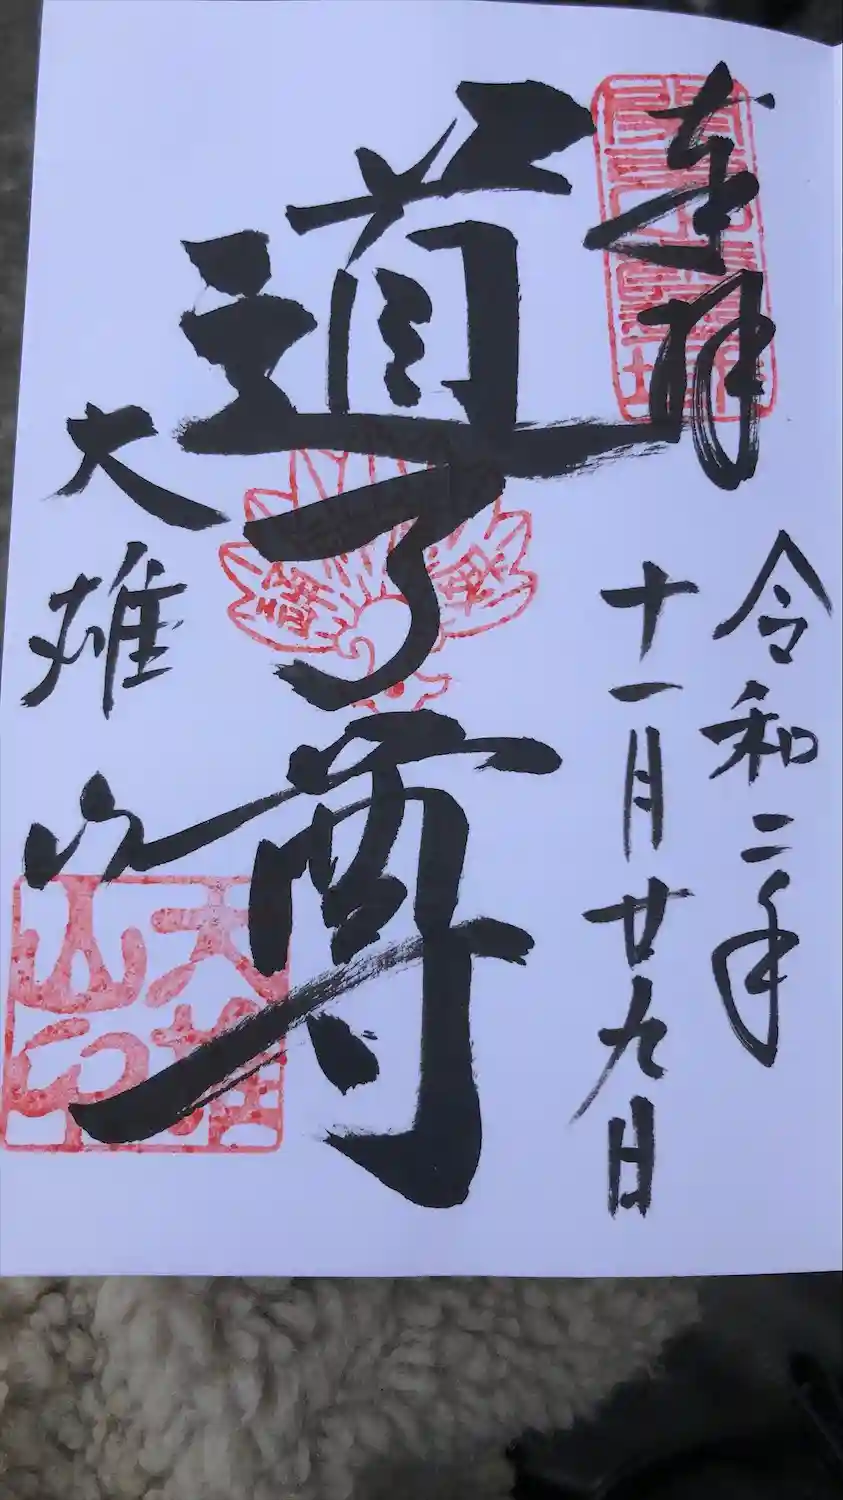 奉拝
令和二年
十一月廿九日
道了尊
大雄山
大雄山印